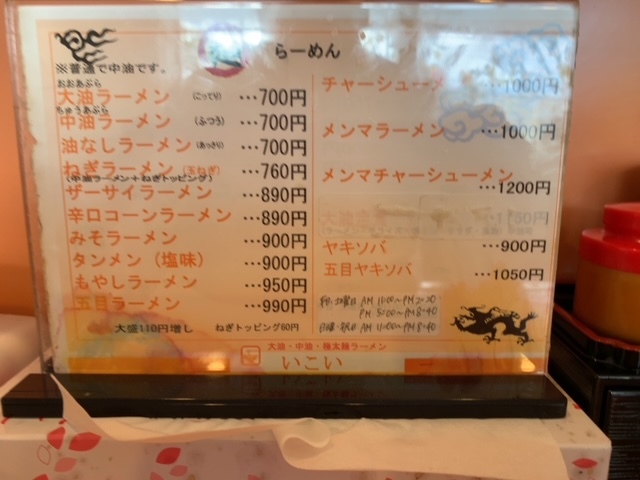 らーめん
※普通で中油です。
おおあぶら
大油ラーメン (こってり) …700円
ちゅうあぶら
中油ラーメン (ふつう) …700円
油なしラーメン (あっさり) …700円
ねぎラーメン (玉ねぎ) …760円
(中油ラーメン+ねぎトッピング)
ザーサイラーメン …890円
辛口コーンラーメン …890円
みそラーメン …900円
タンメン (塩味) …900円
もやしラーメン …950円
五目ラーメン …990円
大盛110円増し ねぎトッピング60円
チャーシューメン …1000円
メンマラーメン …1000円
メンマチャーシューメン
…1200円
ヤキソバ …900円
五目ヤキソバ …1050円
AM 11:00〜PM 2:20
PM 5:00〜PM 8:40
日曜・祝日 AM 11:00〜PM 8:40
大油・中油・極太麺ラーメン
いこい